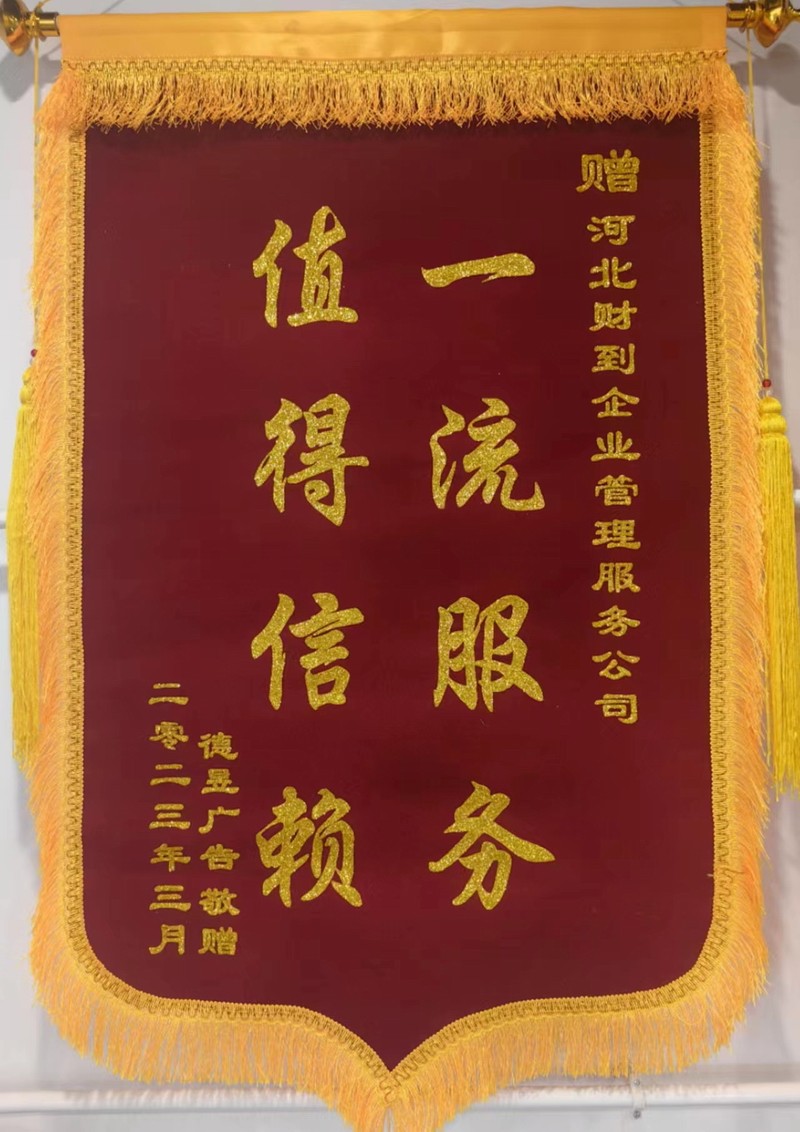 赠河北财到企业管理服务公司
一流服务
值得信赖
德昱广告敬赠
二零二三年三月